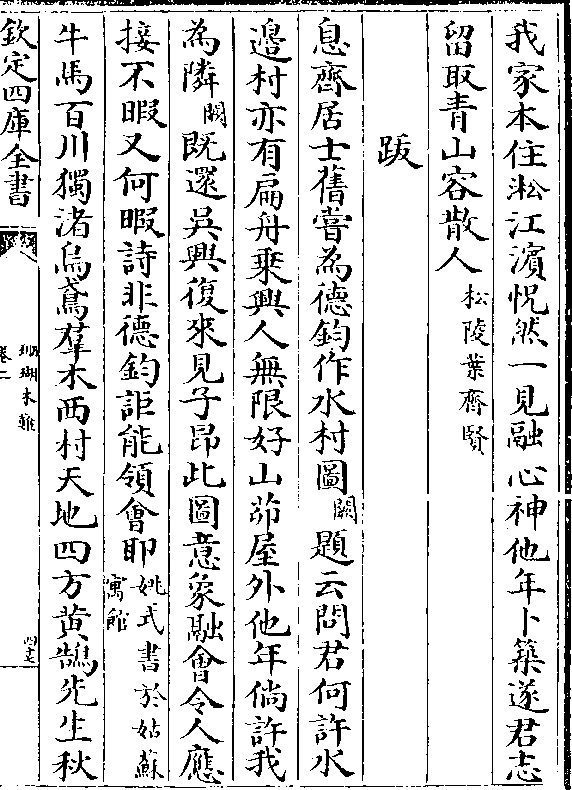 我家本住淞江濵恍然一見融心神他年卜築遂君志
留取青山容散人松陵葉齊賢
跋
息齊居士舊嘗為德鈞作水村圖闕題云問君何許水
邉村亦有扁舟乗興人無限好山茆屋外他年倘許我
為隣闕既還吳興復來見子昂此圖意象融會令人應
接不暇又何暇詩非德鈞詎能領會耶姚式書於姑蘇
寓館
牛馬百川獨渚烏鳶羣木西村天地四方黄鵠先生秋
欽定四庫全書
珊瑚木難
卷二